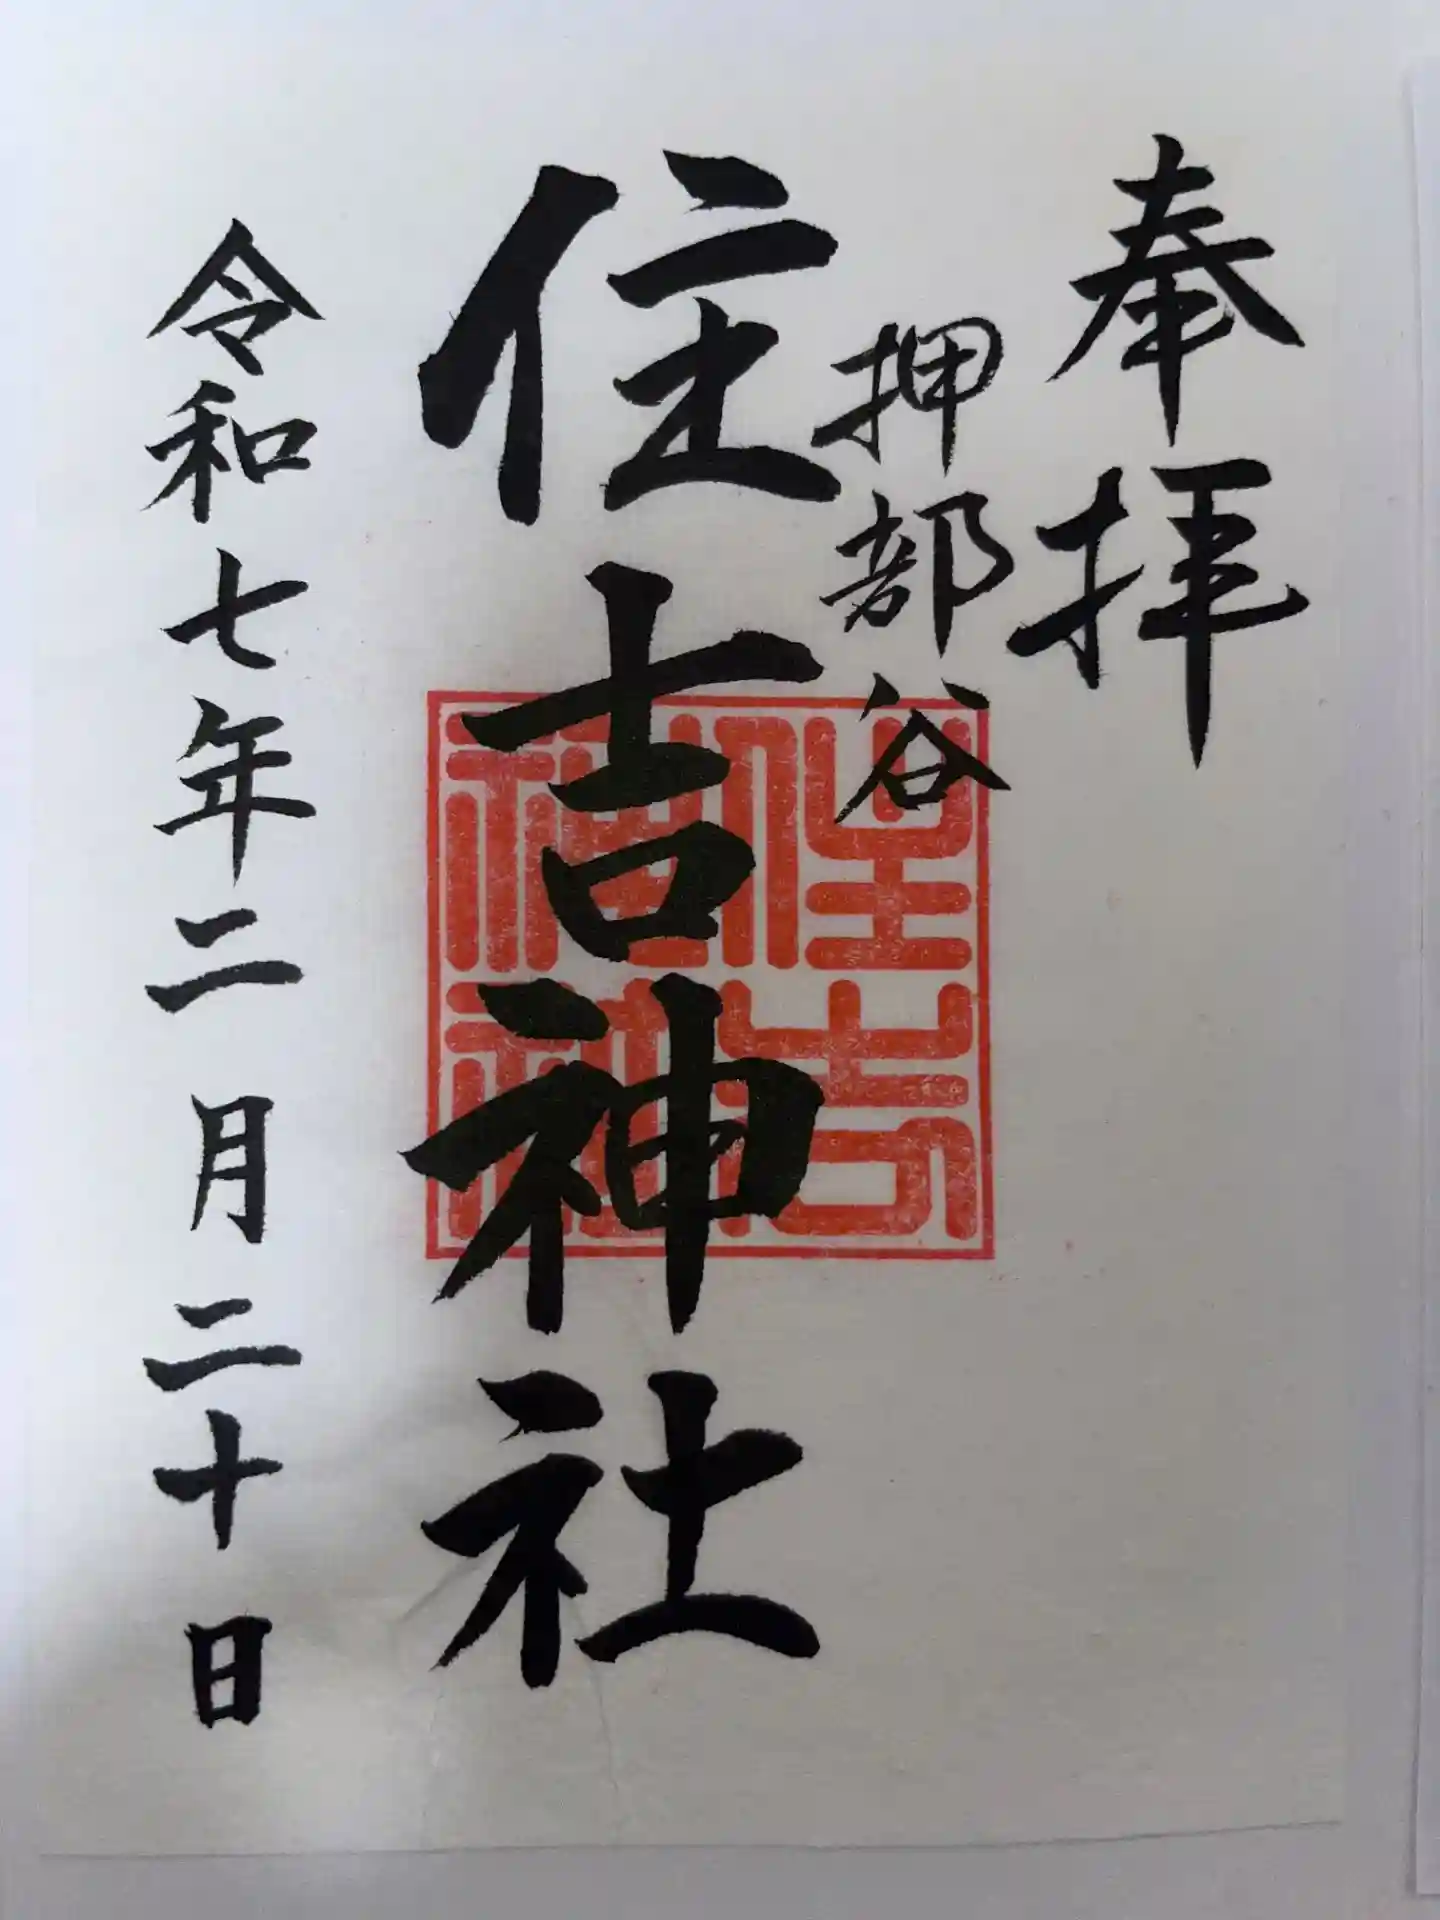 奉拝
押部谷
住吉神社
住吉
神社
令和七年二月二十日